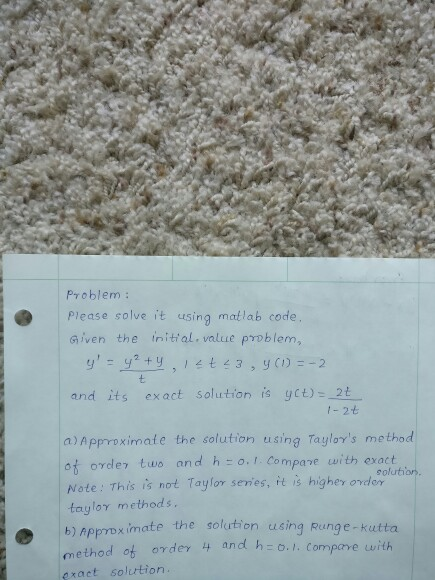 Problem :
Please solve it using matlab code.
Given the initial-value problem,
y' = y² + y / t , 1 ≤ t ≤ 3 , y(1) = -2
and its exact solution is y(t) = 2t / 1 - 2t
a) Approximate the solution using Taylor's method
of order two and h = 0.1. Compare with exact solution.
Note: This is not Taylor series, it is higher order
taylor methods.
b) Approximate the solution using Runge-Kutta
method of order 4 and h = 0.1. Compare with
exact solution.